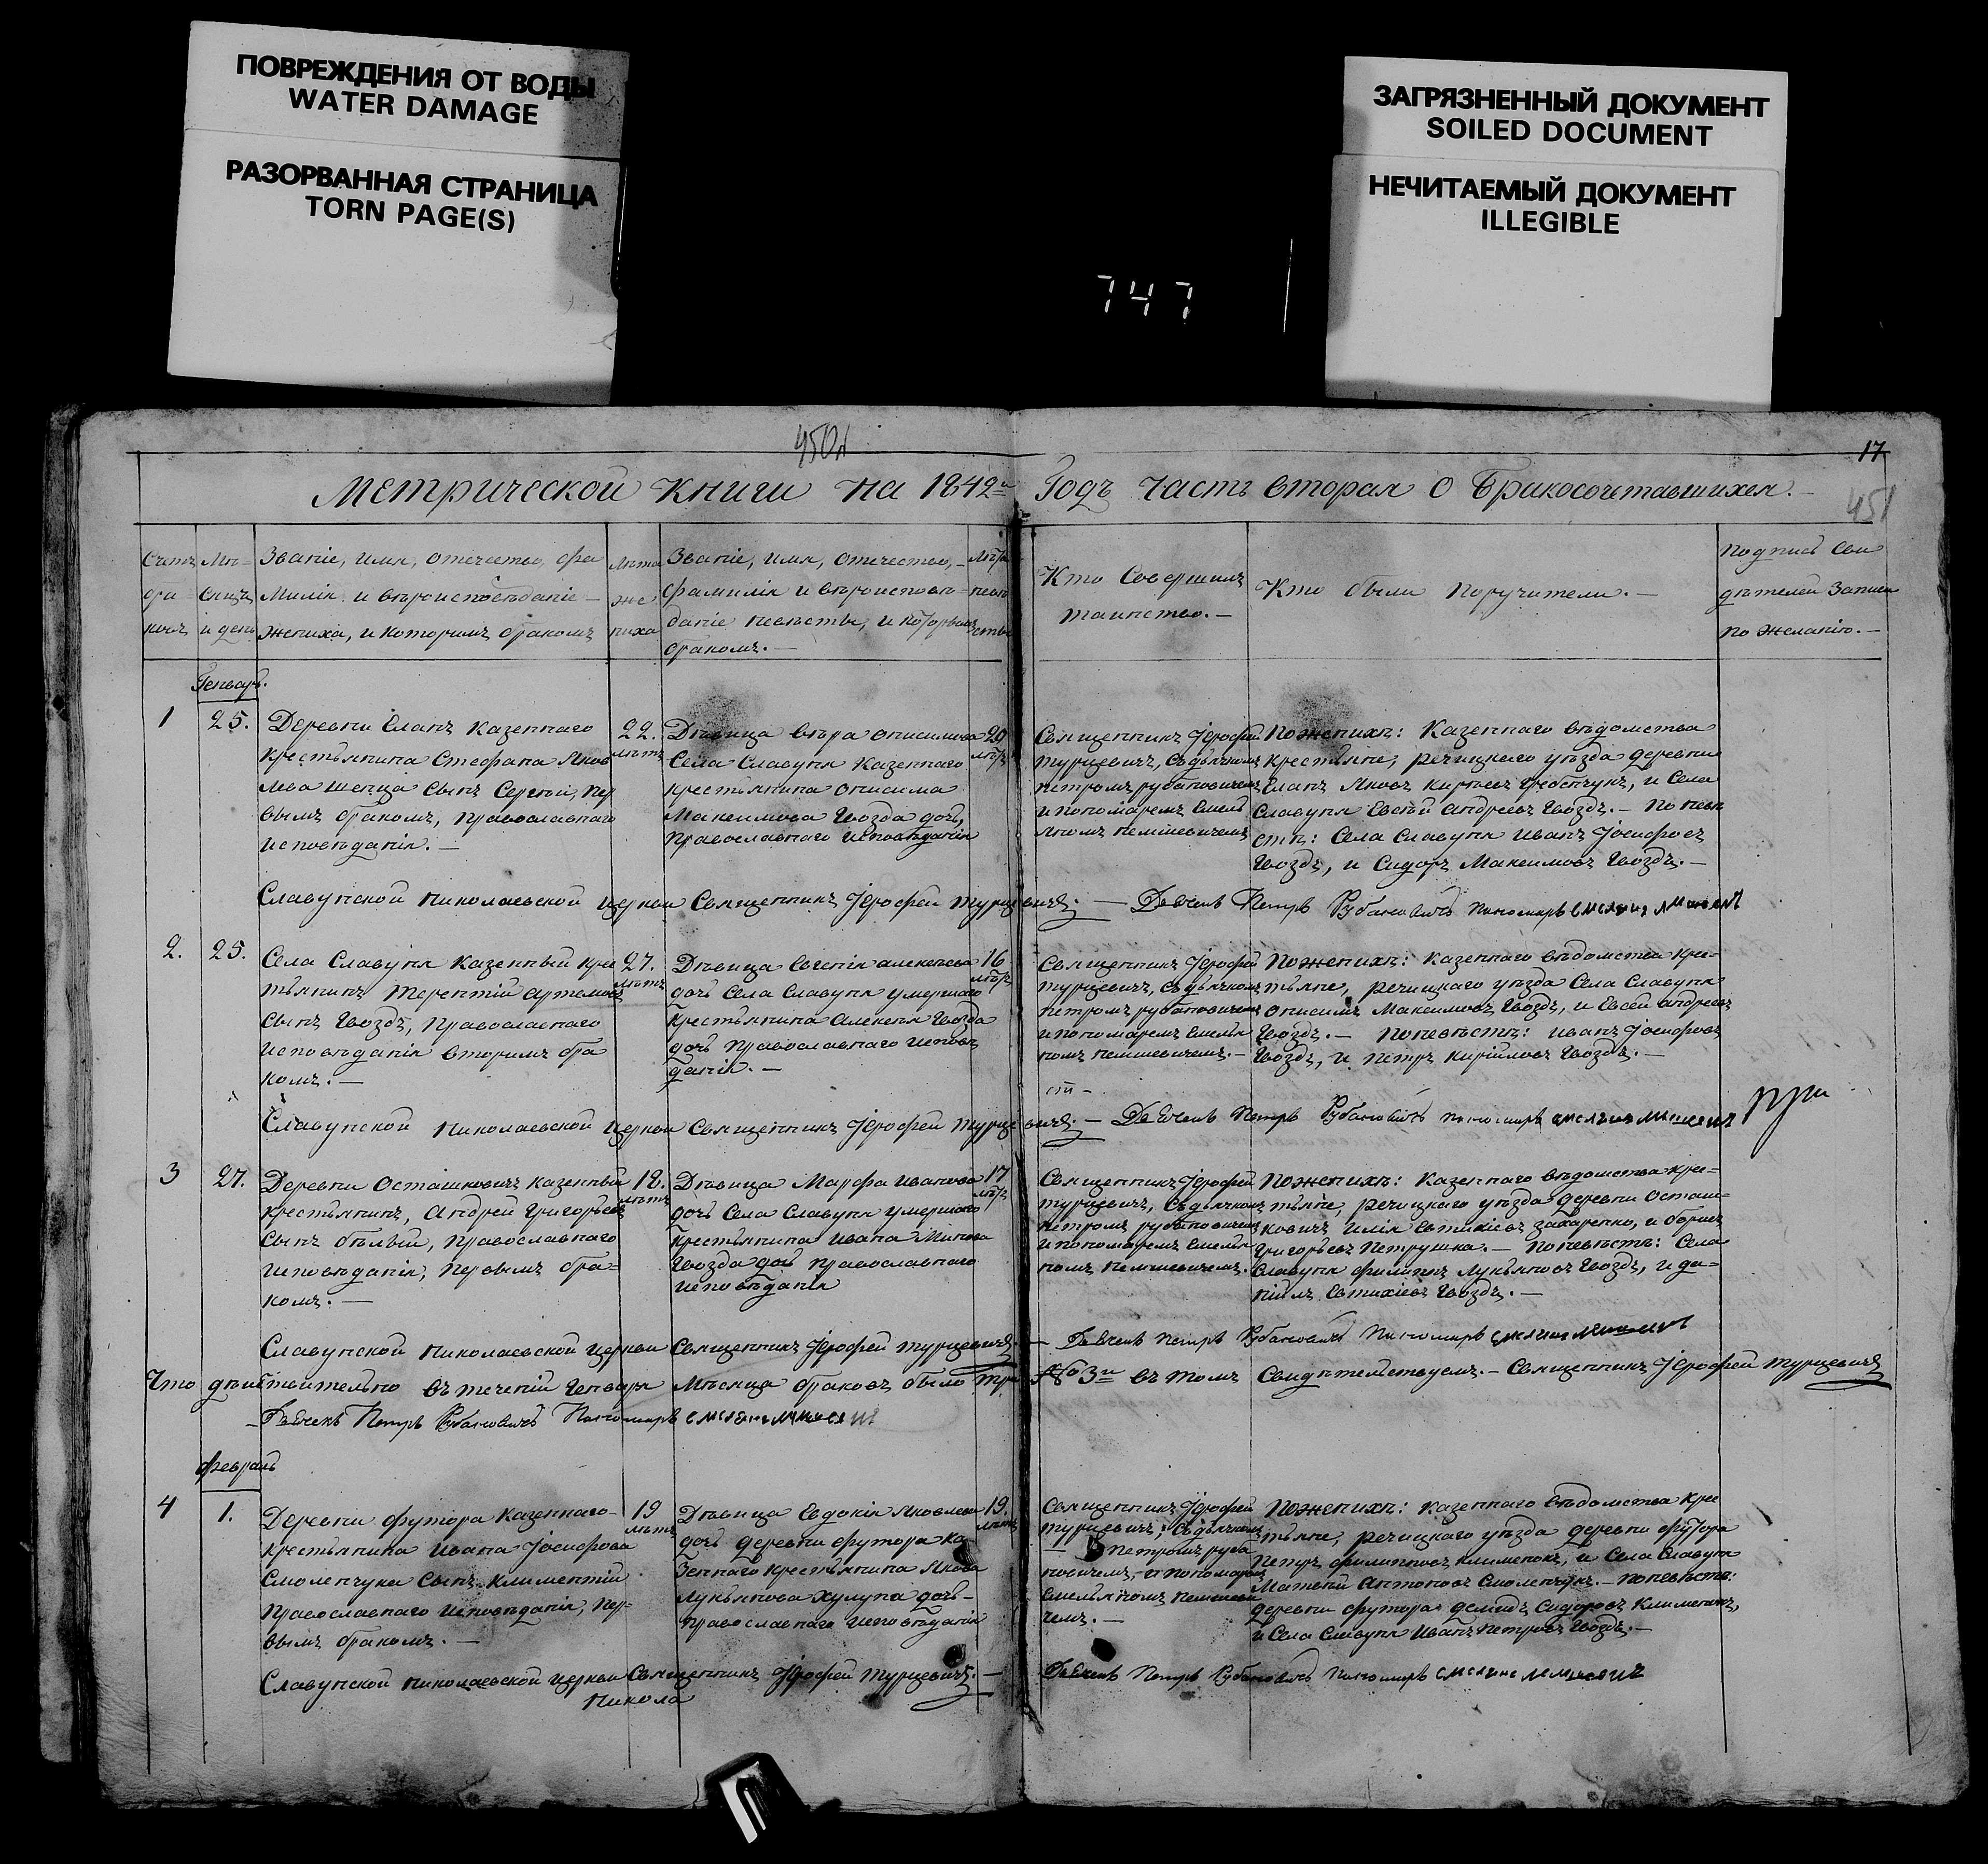 ПОВРЕЖДЕНИЯ ОТ ВОДЫ
WATER DAMAGE
РАЗОРВАННАЯ СТРАНИЦА
TORN PAGE(S)
ЗАГРЯЗНЕННЫЙ ДОКУМЕНТ
SOILED DOCUMENT
НЕЧИТАЕМЫЙ ДОКУМЕНТ
ILLEGIBLE
747
450
17
451
Метрической книги на 1842й Годъ часть вторая о Бракосочетавшихся.
Счетъ
бра
ковъ
Мѣ-
сяцъ
и день
Званіе, имя, отечество, фа
милія и вѣроисповѣданіе
жениха, и которымъ бракомъ
Лѣта
же
ниха
Званіе, имя, отечество,
фамилія и вѣроисповѣ-
даніе невѣсты, и которымъ
бракомъ.
Лѣта
невѣ
сты
Кто совершилъ
таинство.
Кто были поручители.
Подпись сви
дѣтелей записи
по желанію.
Генварь.
1
25.
Деревни Еланъ казеннаго
крестьянина Стефана Яков
лева Шевца сынъ Сергѣй, пер
вымъ бракомъ, православнаго
исповѣданія.
22.
лѣтъ
Дѣвица Вѣра Онисимова
села Славуня казеннаго
крестьянина Онисима
Максимова Гвозда дочь,
православнаго исповѣданія
20
лѣтъ
Священникъ Іерофей
Турцевичъ, съ дьячкомъ
Петромъ Рубановичемъ
и пономаремъ Емель
яномъ Немшевичемъ
По женихѣ: казеннаго вѣдомства
крестьяне, Речицкаго уѣзда деревни
Еланъ Яковъ Карпъевъ Гребенчукъ, и села
Славуня Евсѣй Андреевъ Гвоздъ. По невѣ
стѣ: села Славуня Иванъ Іосифовъ
Гвоздъ, и Сидоръ Максимовъ Гвоздъ.
Славунской Николаевской церкви Священникъ Іерофей Турцевичъ. Дьячекъ Петръ Рубановичъ Пономарь
2.
25.
Села Славуня казенный крес
тьянинъ Терентій Артемовъ
сынъ Гвоздъ, православнаго
исповѣданія вторымъ бра
комъ.
27.
лѣтъ
Дѣвица Евгенія Алексѣева
дочь села Славуня умершаго
крестьянина Алексѣя Гвозда
дочь православнаго исповѣ
данія.
16
лѣтъ
Священникъ Іерофей
Турцевичъ, съ дьячкомъ
Петромъ Рубановичемъ
и пономаремъ Емелья
номъ Немшевичемъ.
По женихѣ: казеннаго вѣдомства кре-
стьяне, Речицкаго уѣзда села Славуня
Онисимъ Максимовъ Гвоздъ, и Евсей Андреевъ
Гвоздъ. По невѣстѣ: Иванъ Іосифовъ
Гвоздъ, и Петръ Кириловъ Гвоздъ.
Славунской Николаевской церкви Священникъ Іерофей Турцевичъ. Дьячекъ Петръ Рубановичъ Пономарь
3
27.
Деревни Осташковичъ казенный
крестьянинъ, Андрей Григорьевъ
сынъ Бѣлый, православнаго
исповѣданія, первымъ бра-
комъ.
18.
лѣтъ
Дѣвица Марфа Иванова
дочь села Славуня умершаго
крестьянина Ивана Минова
Гвозда дочь православнаго
исповѣданія
17
лѣтъ
Священникъ Іерофей
Турцевичъ, съ дьячкомъ
Петромъ Рубановичемъ
и пономаремъ Емелья
номъ Немшевичемъ.
По женихѣ: казеннаго вѣдомства кре-
стьяне Речицкаго уѣзда деревни Осташ-
ковичъ Илія Евтихіевъ Захаренко, и Борисъ
Григорьевъ Петрушка. По невѣстѣ: села
Славуня Филиппъ Лукьяновъ Гвоздъ, и Да-
ніилъ Евтихіевъ Гвоздъ.
Славунской Николаевской церкви Священникъ Іерофей Турцевичъ. Дьячекъ Петръ Рубановичъ Пономарь
Что дѣйствительно въ теченіи генваря мѣсяца браковъ было три №3й въ томъ свидѣтельствуемъ. Священникъ Іерофей Турцевичъ
Дьячекъ Петръ Рубановичъ Пономарь
Февраль
4
1.
Деревни Футора казеннаго
крестьянина Ивана Іосифова
Смоленчука сынъ Климентій
православнаго исповѣданія, пер-
вымъ бракомъ.
19
лѣтъ
Дѣвица Евдокія Яковлева
дочь деревни Футора ка
зеннаго крестьянина Якова
Лукьянова Хулупа дочь
православнаго исповѣданія
19.
лѣтъ
Священникъ Іерофей
Турцевичъ, съ дьячкомъ
Петромъ Руба
новичемъ, и пономаремъ
Емельяномъ Немшеви
чемъ.
По женихѣ: казеннаго вѣдомства крес
тьяне, Речицкаго уѣзда деревни Футора
Петръ Филипповъ Клименокъ, и села Славуня
Матвѣй Антоновъ Смоленчукъ. По невѣстѣ:
деревни Футора Демидъ Сидоровъ Клименокъ,
и села Славуня Иванъ Петровъ Гвоздъ.
Славунской Николаевской церкви Священникъ Іерофей Турцевичъ.
Никола
Дьячекъ Петръ Рубановичъ Пономарь